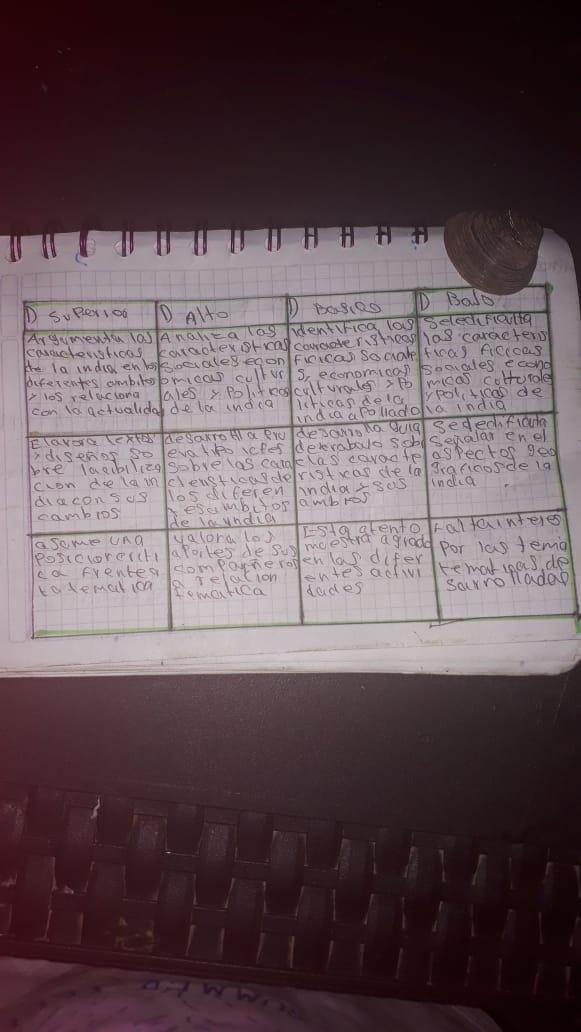 D Superior
Argumenta las
caracteristicas
de la india en los
diferentes ambitos
y los relaciona
con la actualidad
D Alto
Analiza las
caracteristicas
sociales econ
omicas cultur
ales y Politicas
de la india
D Basico
identifica las
caracteristicas
ficicas sociale
s, economicas
culturales y Po
liticas de la
india apollado
D Bajo
Seledificulta
las caracteris
ticas ficicas
sociales econo
micas culturale
y Politicas de
la india
Elavora textos
y diseños so
bre lacibiliza
cion de la in
dia con sus
cambios
desarrolla pru
eva tipo icfes
sobre las cara
cteristicas de
los diferen
tes ambitos
de la india
desarrolla guia
de trabajo sob
re las caracte
risticas de la
india y sus
ambitos
Sededificulta
señalar en el
aspectos geo
graficos de la
india
asume una
Posicion criti
ca frente a
la tematica
valora los
aportes de sus
compañeros
relacion
tematica
Esta atento
muestra agrado
en las difer
entes activi
dades
Falta interes
Por las tema
tematicas de
sarrolladas